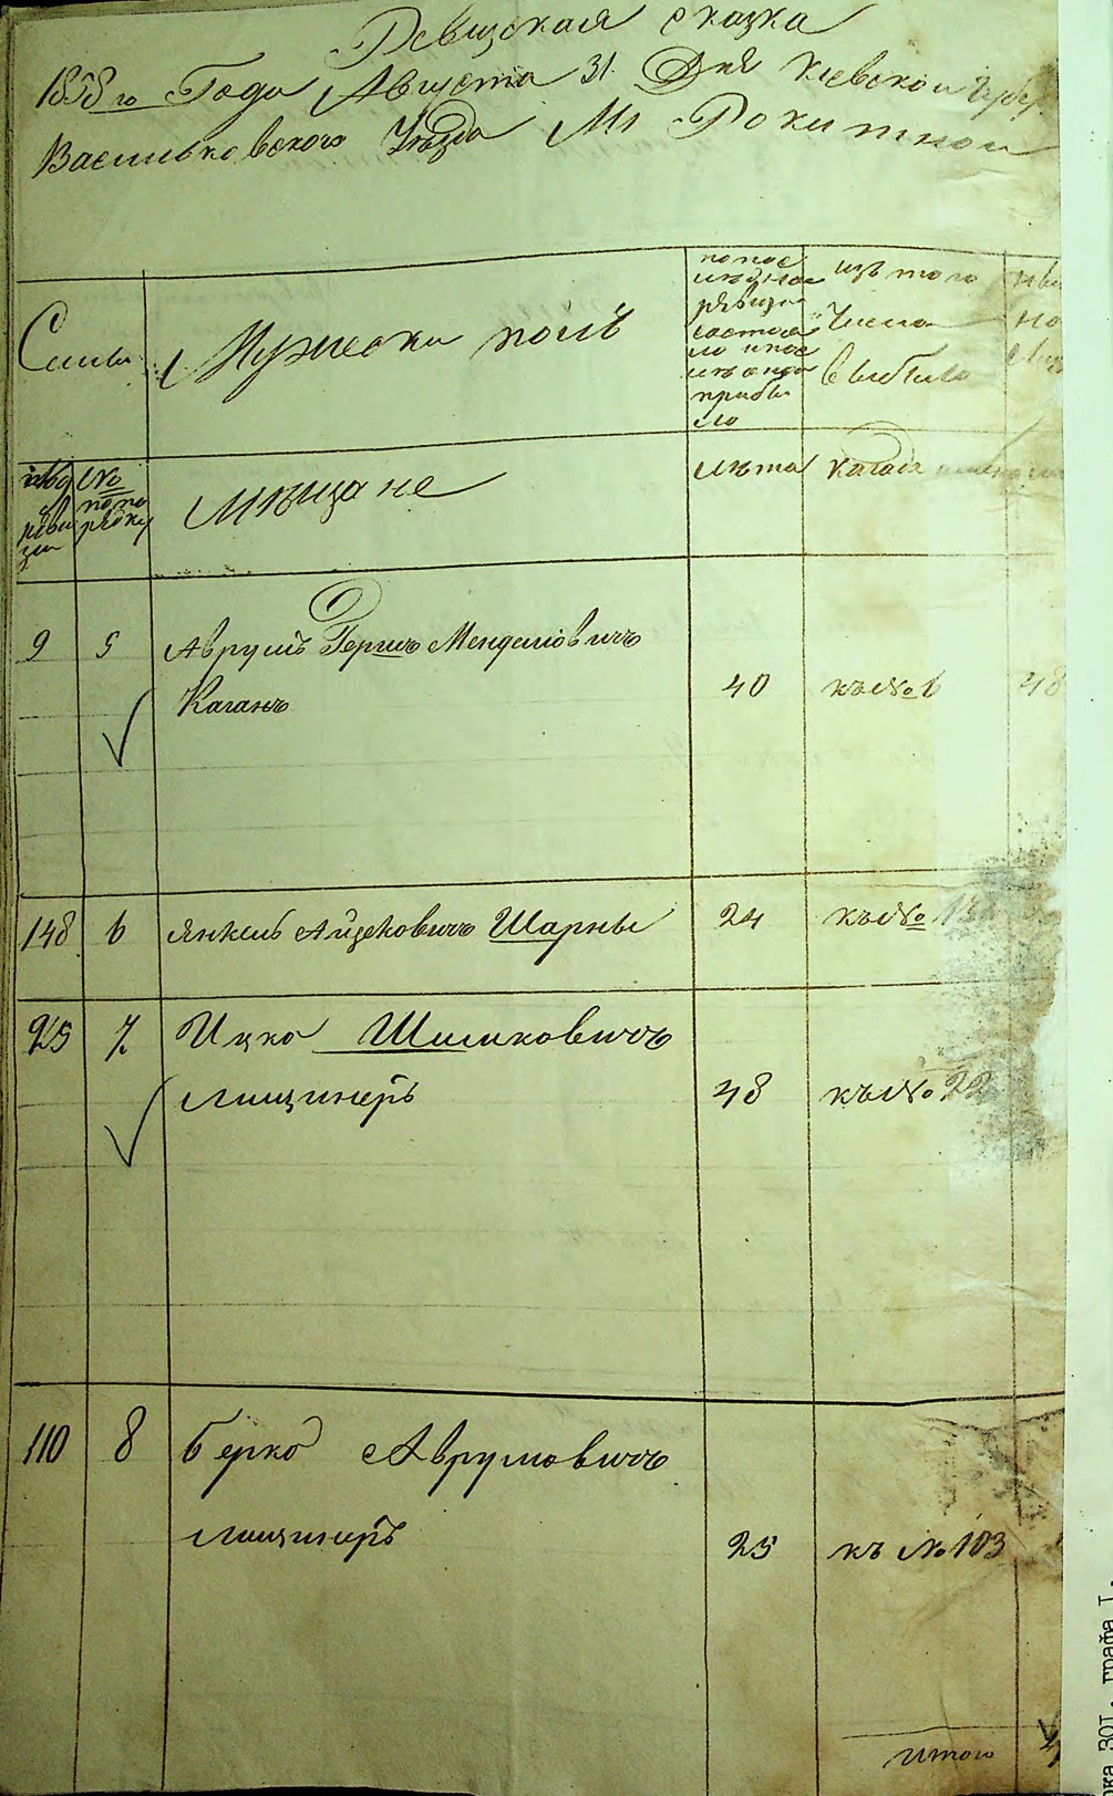 Ревизская сказка
1858 го Года Августа 31 Дня Киевской Губер.
Васильковского Уезда М. Рокитной
Семьи
Мужеска полъ
по пос
ледней
ревизии
состоя
ло и пос
ле онои
прибы
ло
изъ того
числа
выбыло
ныне
на
лиц
ревизии
№
по по
рядку
Мещане
лета
Когда именно
9 5 Аврумъ Гершъ Менделовичъ
Каганъ 40 къ № 6 48
148 6 Янкель Айзековичъ Шарный 24 къ №
25 7 Ицко Шимковичъ
Лищинеръ 48 къ № 22
110 8 Берко Аврумовичъ
Лищинеръ 25 къ № 103
Итого